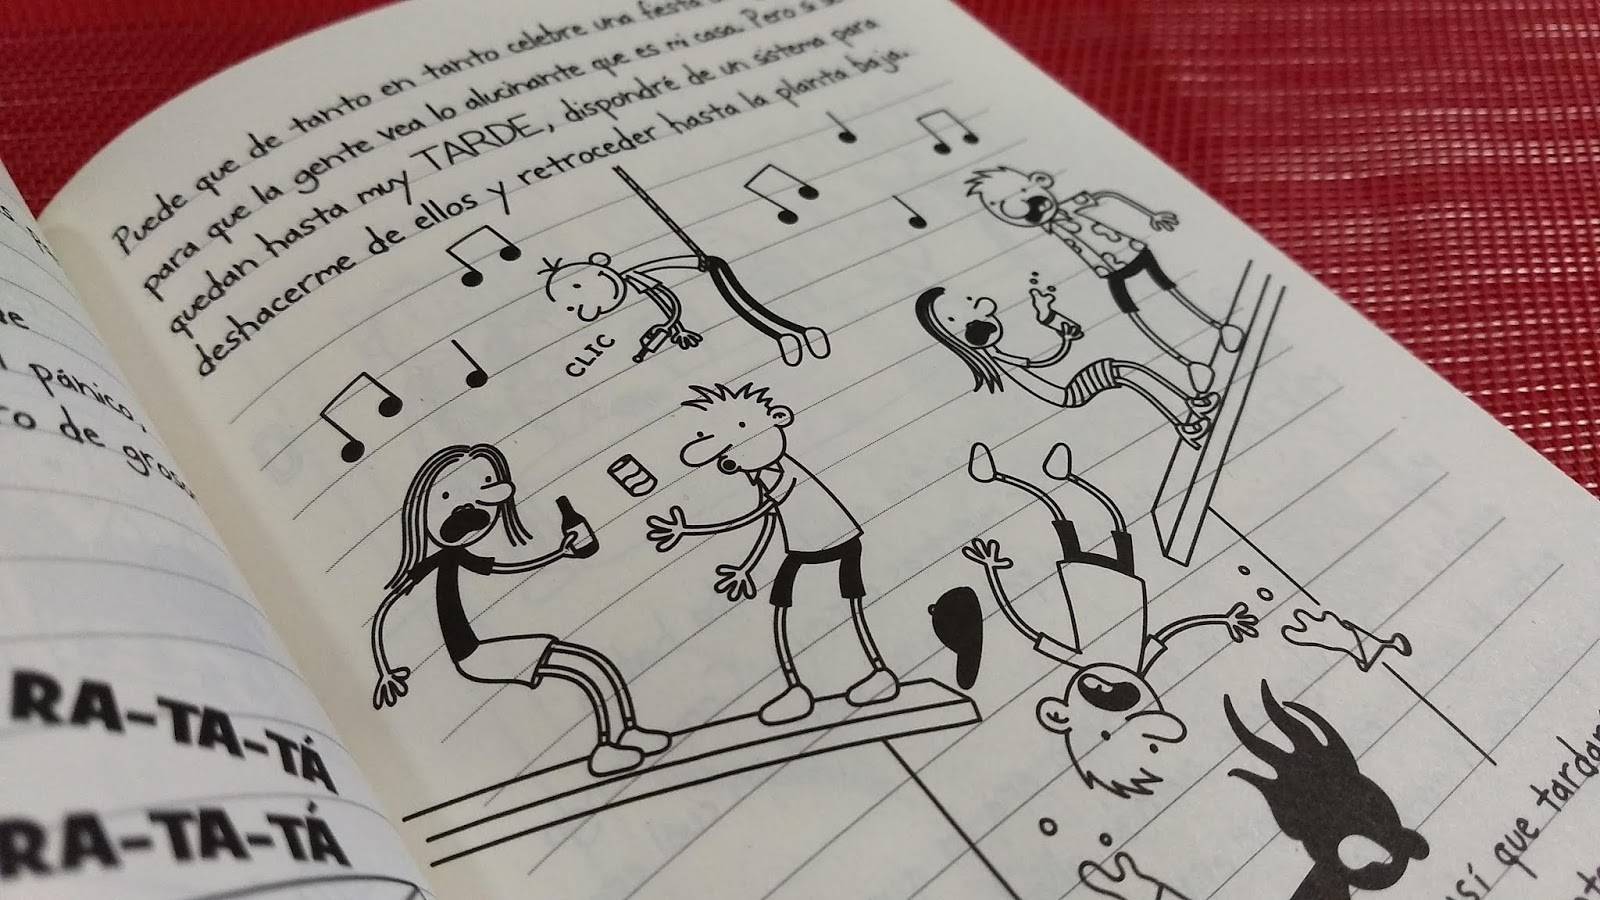 Puede que de tanto en tanto celebre una fiesta
para que la gente vea lo alucinante que es mi casa. Pero si se
quedan hasta muy TARDE, dispondré de un sistema para
deshacerme de ellos y retroceder hasta la planta baja.
CLIC
pánico,
de
RA-TA-TÁ
RA-TA-TÁ
así que tardar